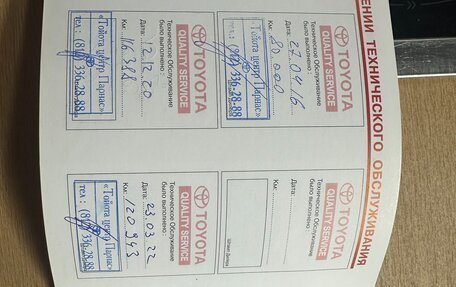 ЕНИИ ТЕХНИЧЕСКОГО ОБСЛУЖИВАНИЯ
TOYOTA
QUALITY SERVICE
Техническое Обслуживание
было выполнено:
Дата: 27.04.16
Км: 20 000
«Тойота центр Парнас»
тел.: (812) 336-28-88
TOYOTA
QUALITY SERVICE
Техническое Обслуживание
было выполнено:
Штамп Дилера
TOYOTA
QUALITY SERVICE
Техническое Обслуживание
было выполнено:
Дата: 12.12.20
Км: 116 388
«Тойота центр Парнас»
тел.: (812) 336-28-88
TOYOTA
QUALITY SERVICE
Техническое Обслуживание
было выполнено:
Дата: 23.03.22
Км: 120 943
«Тойота центр Парнас»
тел.: (812) 336-28-88